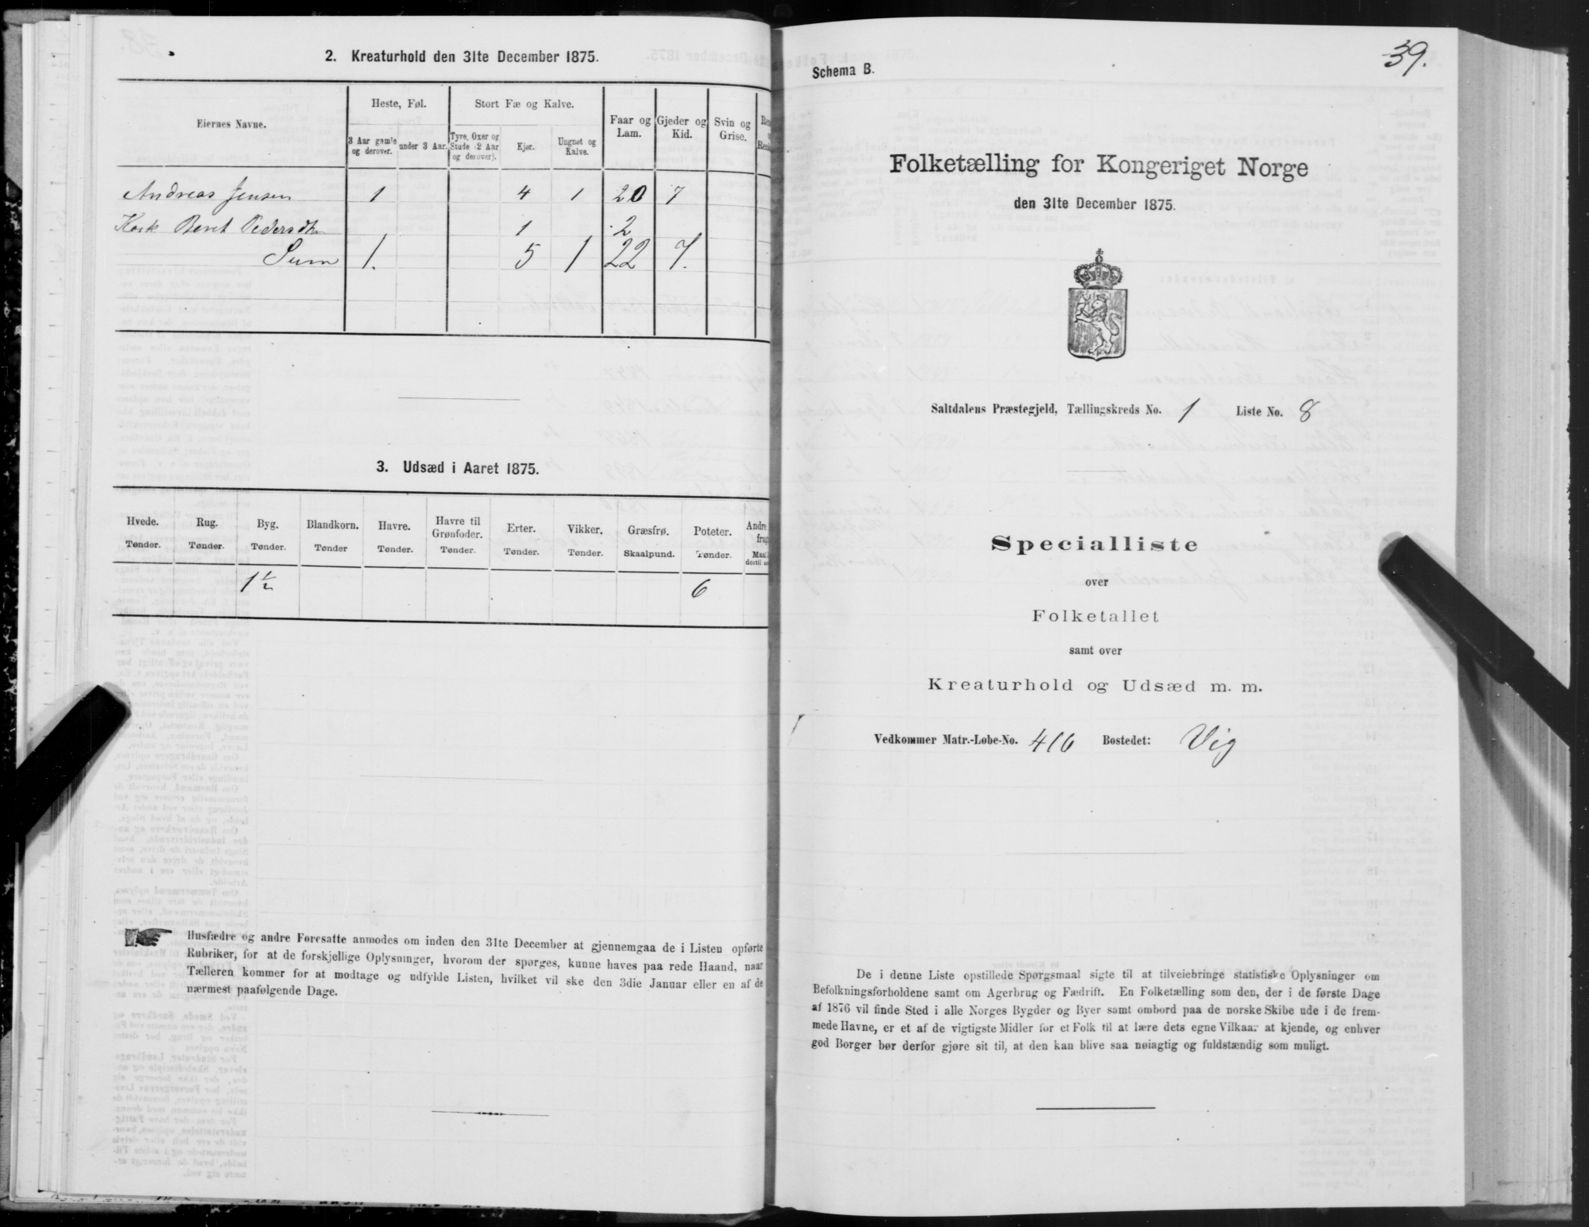 2. Kreaturhold den 31te December 1875.
Eiernes Navne.
Heste, Føl.
Stort Fæ og Kalve.
Faar og Lam.
Gjeder og Kid.
Svin og Grise.
3 Aar gamle og derover.
under 3 Aar.
Tyre, Oxer og Stude (2 Aar og derover).
Kjør.
Ungnet og Kalve.
Andreas Jensen 1 4 1 20 7
Beret Pedersdtr 1 2
Sum 1. 5 1 22 7.
3. Udsæd i Aaret 1875.
Hvede. Rug. Byg. Blandkorn. Havre. Havre til Grønfoder. Erter. Vikker. Græsfrø. Poteter. Andre
Tønder. Tønder. Tønder. Tønder Tønder. Tønder. Tønder. Tønder. Skaalpund. Tønder.
1 1/2 6
Husfædre og andre Foresatte anmodes om inden den 31te December at gjennemgaa de i Listen opførte
Rubriker, for at de forskjellige Oplysninger, hvorom der spørges, kunne haves paa rede Haand, naar
Tælleren kommer for at modtage og udfylde Listen, hvilket vil ske den 3die Januar eller en af de
nærmest paafølgende Dage.
39.
Schema B.
Folketælling for Kongeriget Norge
den 31te December 1875.
Saltdalens Præstegjeld, Tællingskreds No. 1 Liste No. 8
Specialliste
over
Folketallet
samt over
Kreaturhold og Udsæd m. m.
Vedkommer Matr.-Løbe-No. 416 Bostedet: Vig
De i denne Liste opstillede Spørgsmaal sigte til at tilveiebringe statistiske Oplysninger om
Befolkningsforholdene samt om Agerbrug og Fædrift. En Folketælling som den, der i de første Dage
af 1876 vil finde Sted i alle Norges Bygder og Byer samt ombord paa de norske Skibe ude i de frem-
mede Havne, er et af de vigtigste Midler for et Folk til at lære dets egne Vilkaar at kjende, og enhver
god Borger bør derfor gjøre sit til, at den kan blive saa nøiagtig og fuldstændig som muligt.